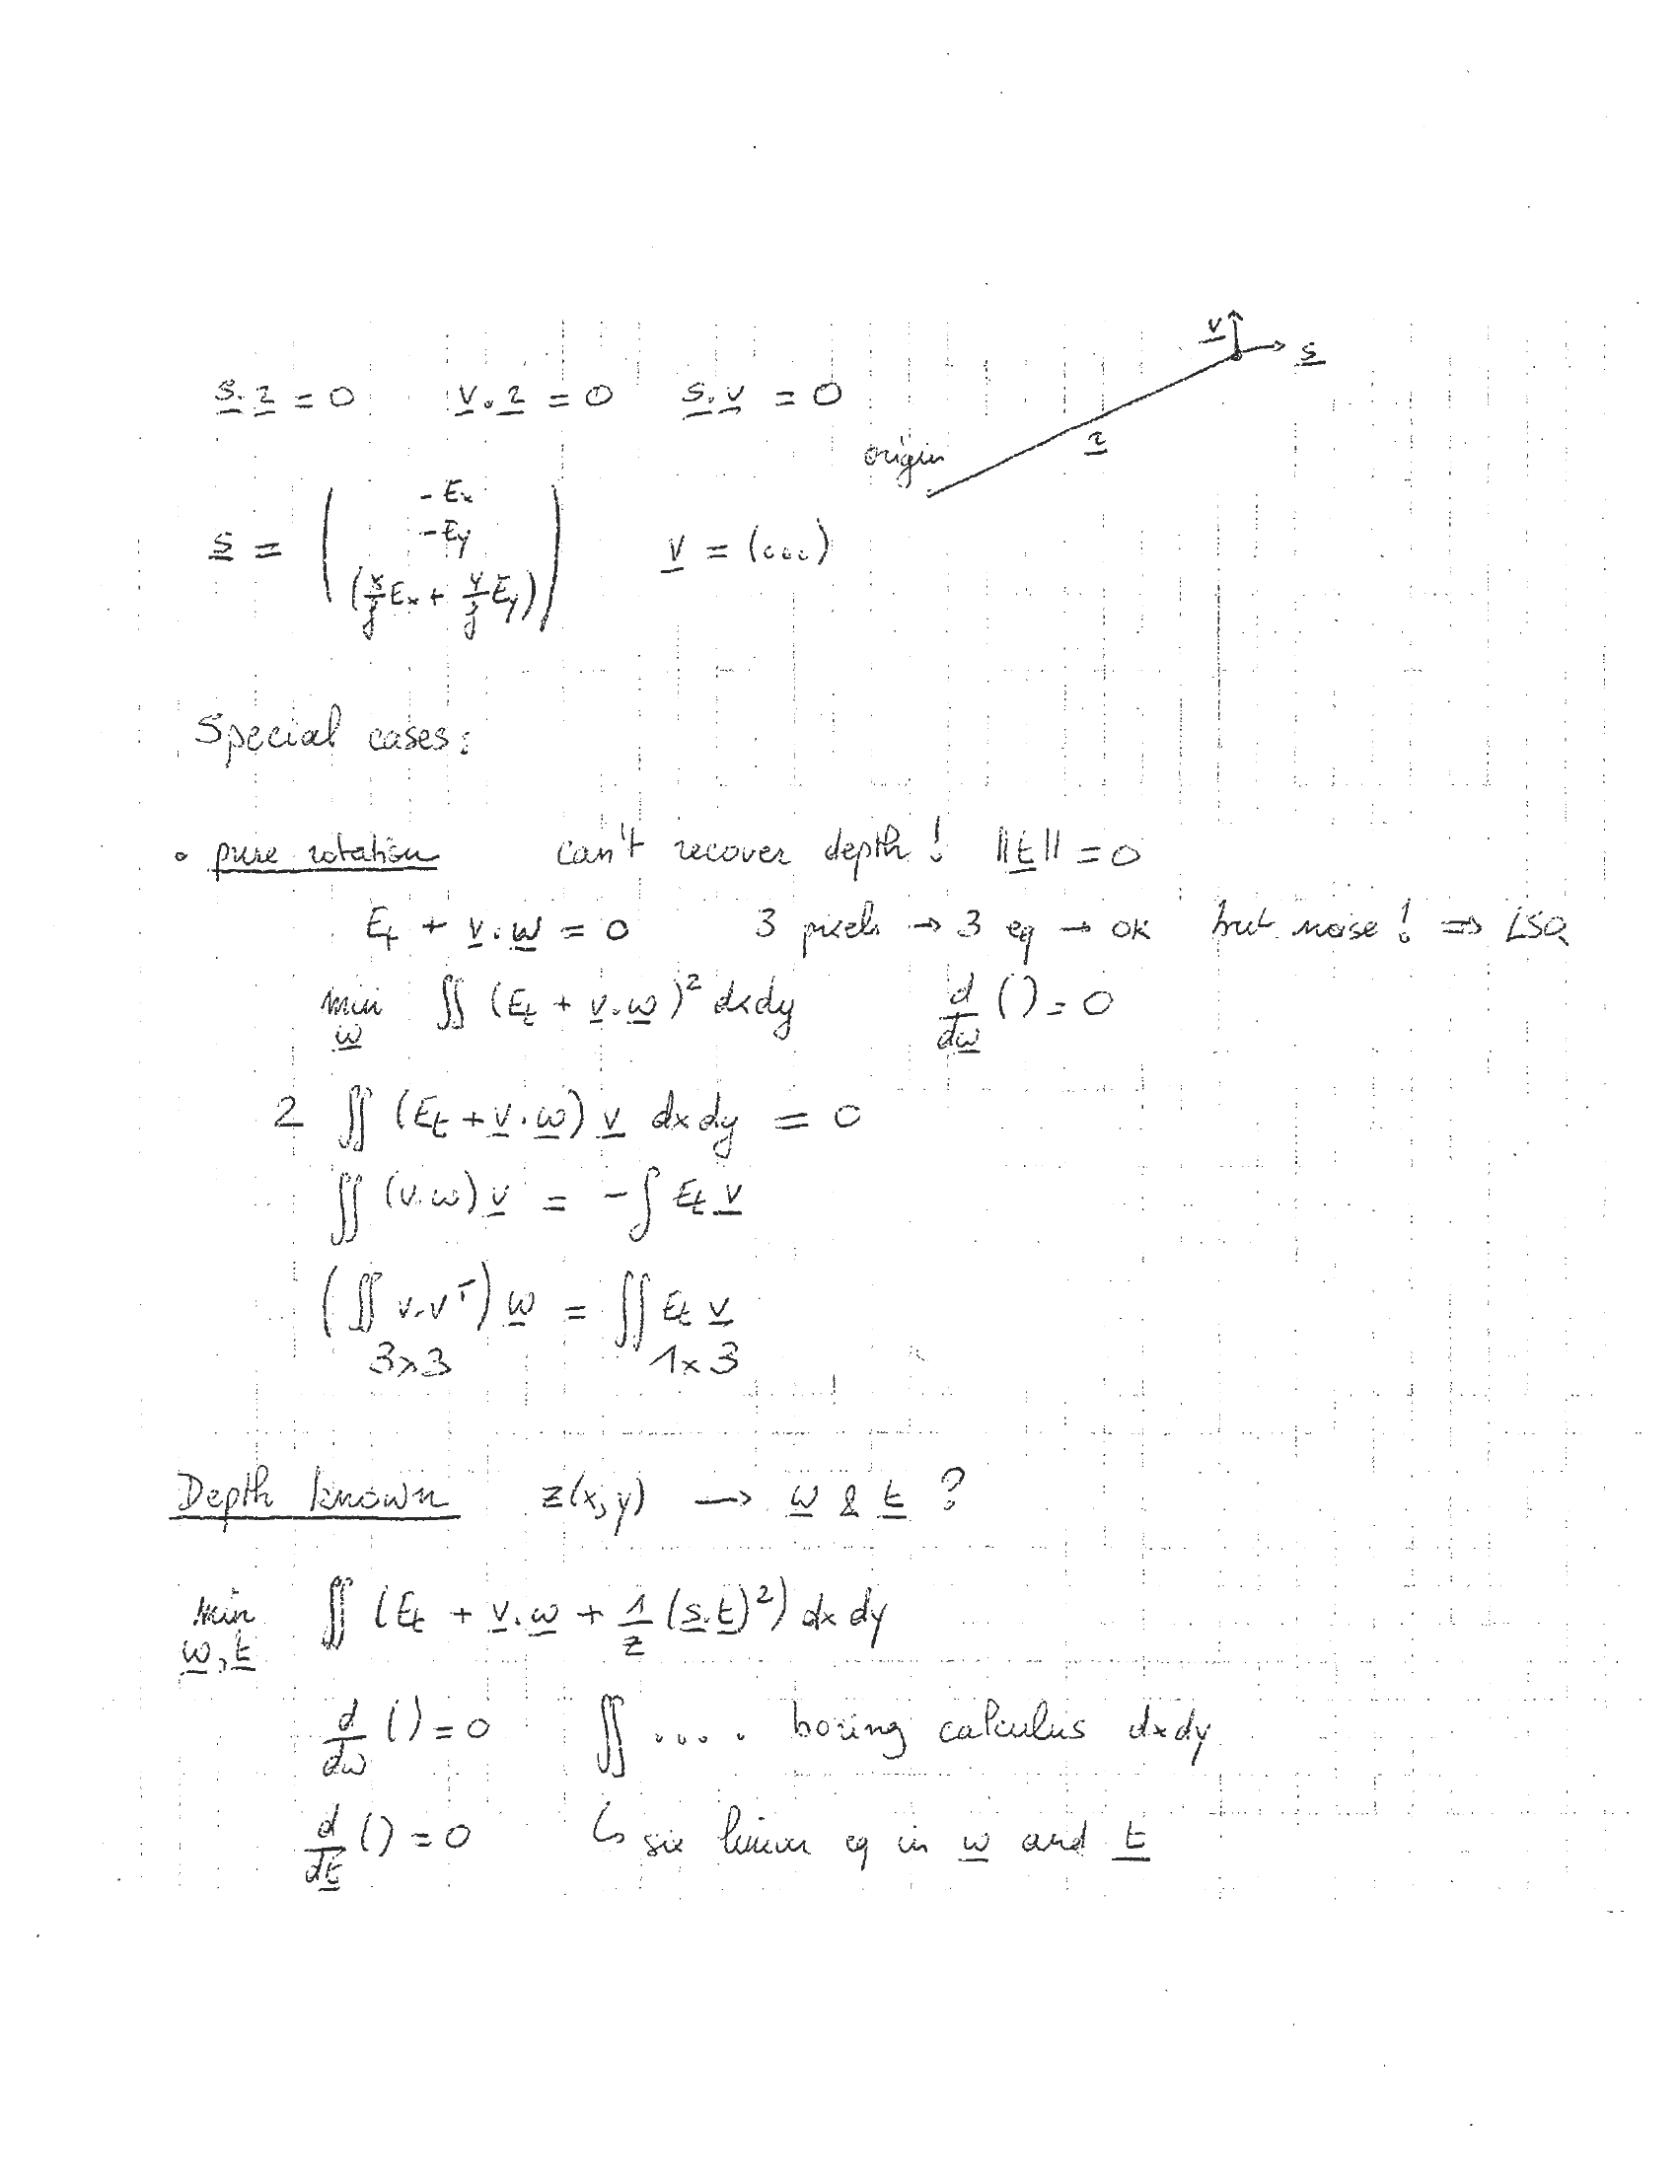 v
s
s·r = 0 v·r = 0 s·v = 0
origin r
s = ( -Ex
-Ey
(x/f Ex + y/f Ey) ) v = (...)
Special cases:
• pure rotation can't recover depth! ||t|| = 0
Et + v·ω = 0 3 pixels → 3 eq → OK but noise! ⇒ LSQ
min ω ∬ (Et + v·ω)² dxdy d/dω () = 0
2 ∬ (Et + v·ω) v dxdy = 0
∬ (v·ω) v = -∫ Et v
(∬ v·vᵀ) ω = ∬ Et v
3x3 1x3
Depth known z(x,y) → ω & t ?
min ω,t ∬ (Et + v·ω + 1/z (s·t)²) dxdy
d/dω () = 0 ∬ .... boring calculus dxdy
d/dt () = 0 ↳ six linear eq in ω and t